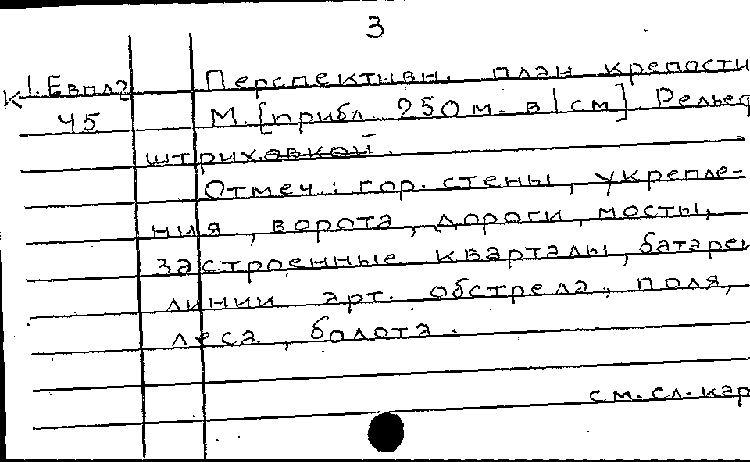 3
К 1. Евпл2 Перспективн. план крепости
45 М. [прибл. 250 м. в 1 см]. Рельеф
штриховкой.
Отмеч.: гор. стены, укрепле-
ния, ворота, дороги, мосты,
застроенные кварталы, батареи
линии арт. обстрела, поля,
леса, болота.
см. сл. кар